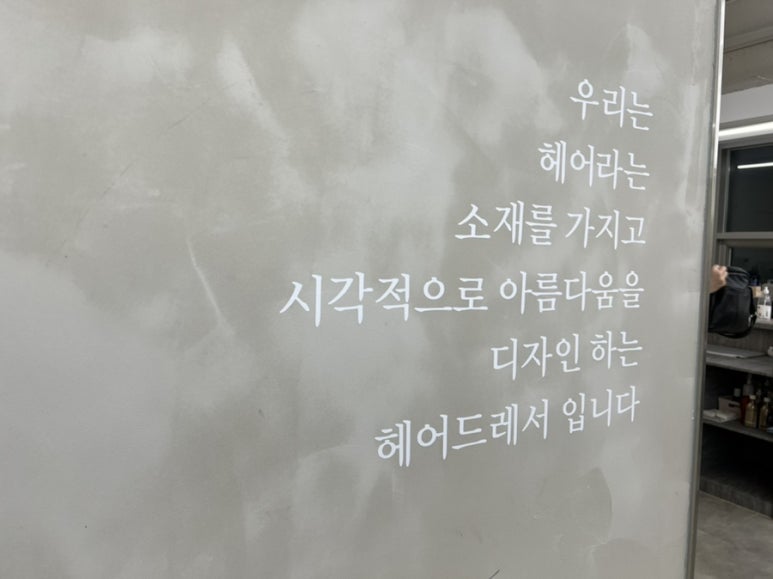 우리는
헤어라는
소재를 가지고
시각적으로 아름다움을
디자인 하는
헤어드레서 입니다